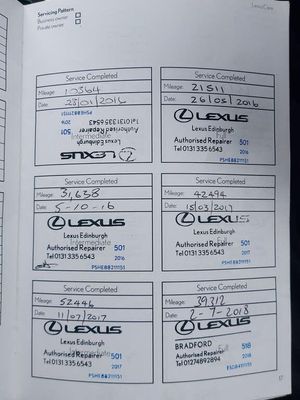 Servicing Pattern
Business owner
Private owner
LexusCare
Service Completed
Mileage: 10364
Date: 28/01/2016
LEXUS
Intermediate
Authorised Repairer 501
Tel 0131 335 6543 2016
PSHEBB211151
Service Completed
Mileage: 21511
Date: 26/05/2016
LEXUS
Lexus Edinburgh
Full
Authorised Repairer 501
Tel 0131 335 6543 2016
PSHEBB211151
Service Completed
31,638
5-10-16
LEXUS
Lexus Edinburgh
Intermediate
Authorised Repairer 501
Tel 0131 335 6543 2016
PSHEBB211151
Service Completed
42494
Date: 15/03/2017
LEXUS
Lexus Edinburgh
Full
Authorised Repairer 501
Tel 0131 335 6543 2016
PSHEBB211151
Service Completed
52446
11/07/2017
LEXUS
Lexus Edinburgh
Intermediate
Authorised Repairer 501
Tel 0131 335 6543 2017
PSHEBB211151
Service Completed
Mileage: 39312
Date: 2-7-2018
LEXUS
BRADFORD 518
Full
Authorised Repairer 2018
Tel 01274892894
17